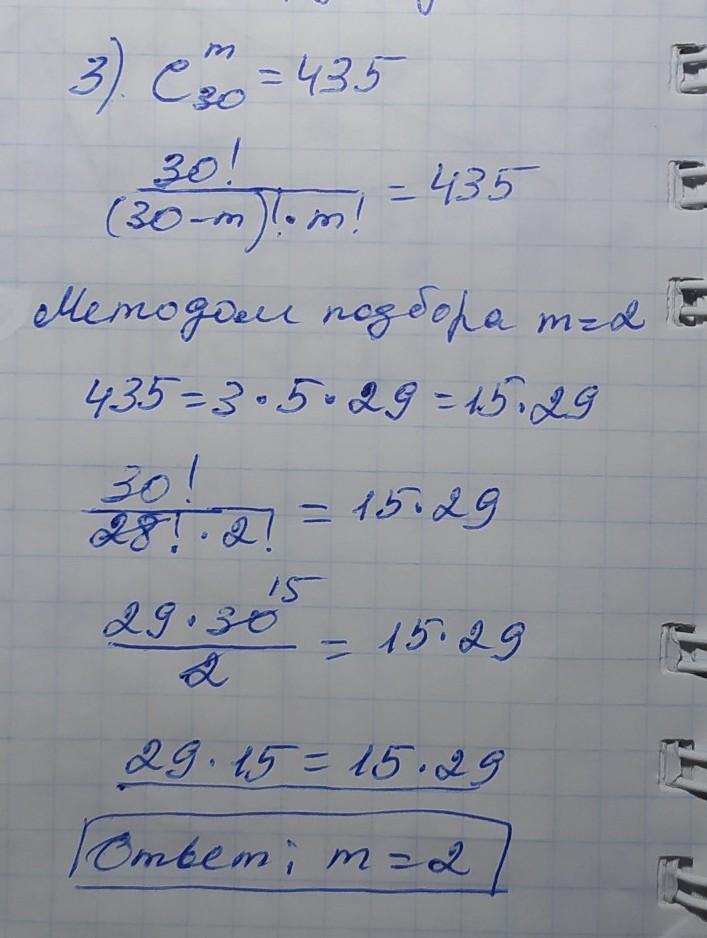 3). C_30^m = 435
30! / ((30-m)! · m!) = 435
Методом подбора m=2
435 = 3 · 5 · 29 = 15 · 29
30! / (28! · 2!) = 15 · 29
29 · 30 15 / 2 = 15 · 29
29 · 15 = 15 · 29
Ответ: m = 2